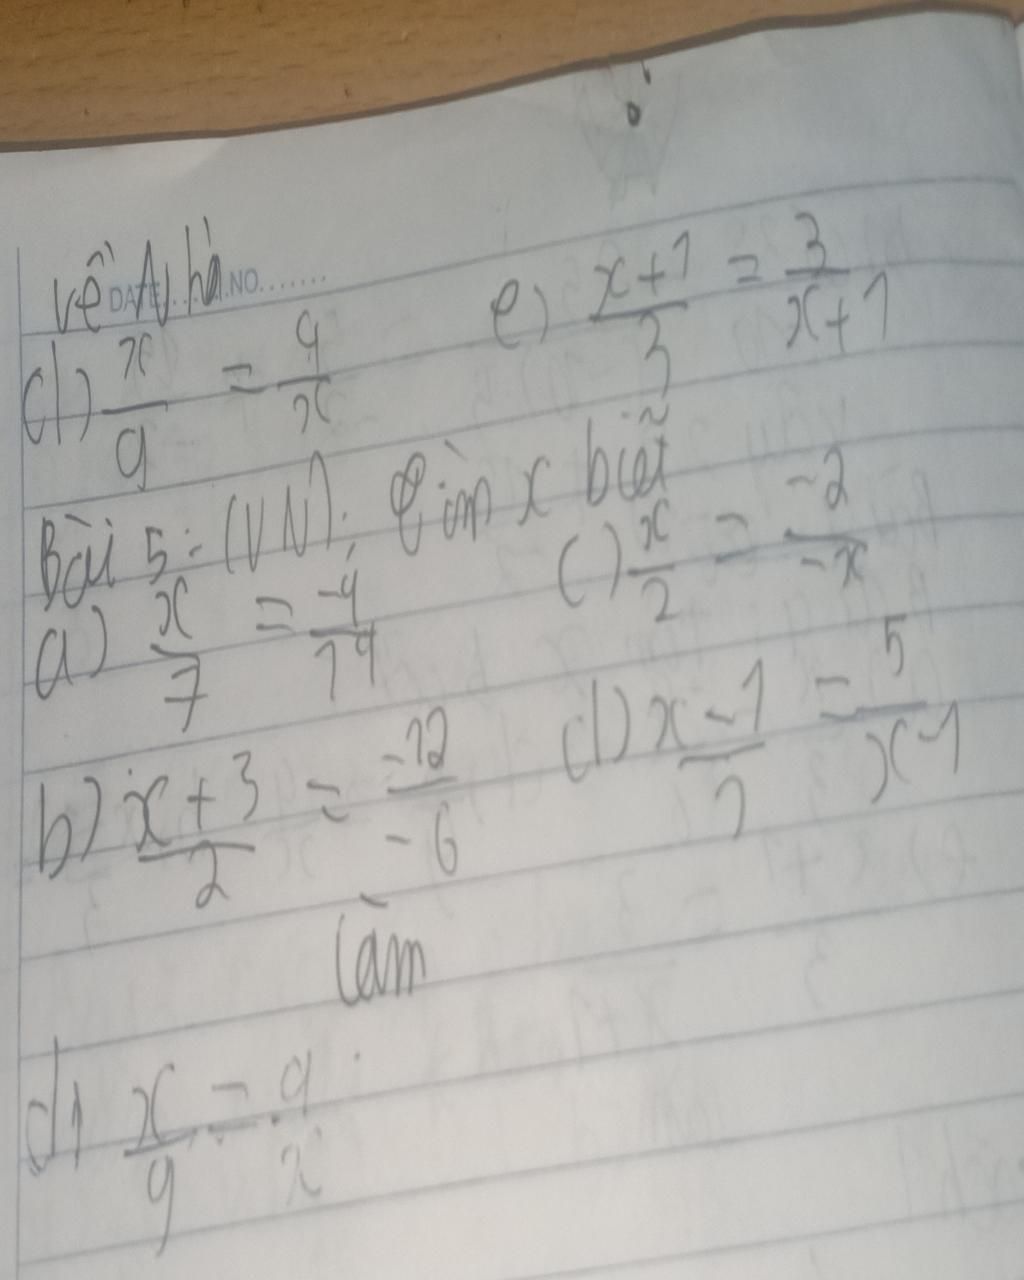 Về Nhà
DATE NO.......
d) x/9 = 9/x e) x+1/3 = 3/x+1
Bài 5: (VN): Tìm x biết
a) x/7 = -4/14 c) x/2 = -2/-x
b) x+3/2 = -12/-6 d) x-1/ = 5/x-1
Làm
d) x/9 = 9/x